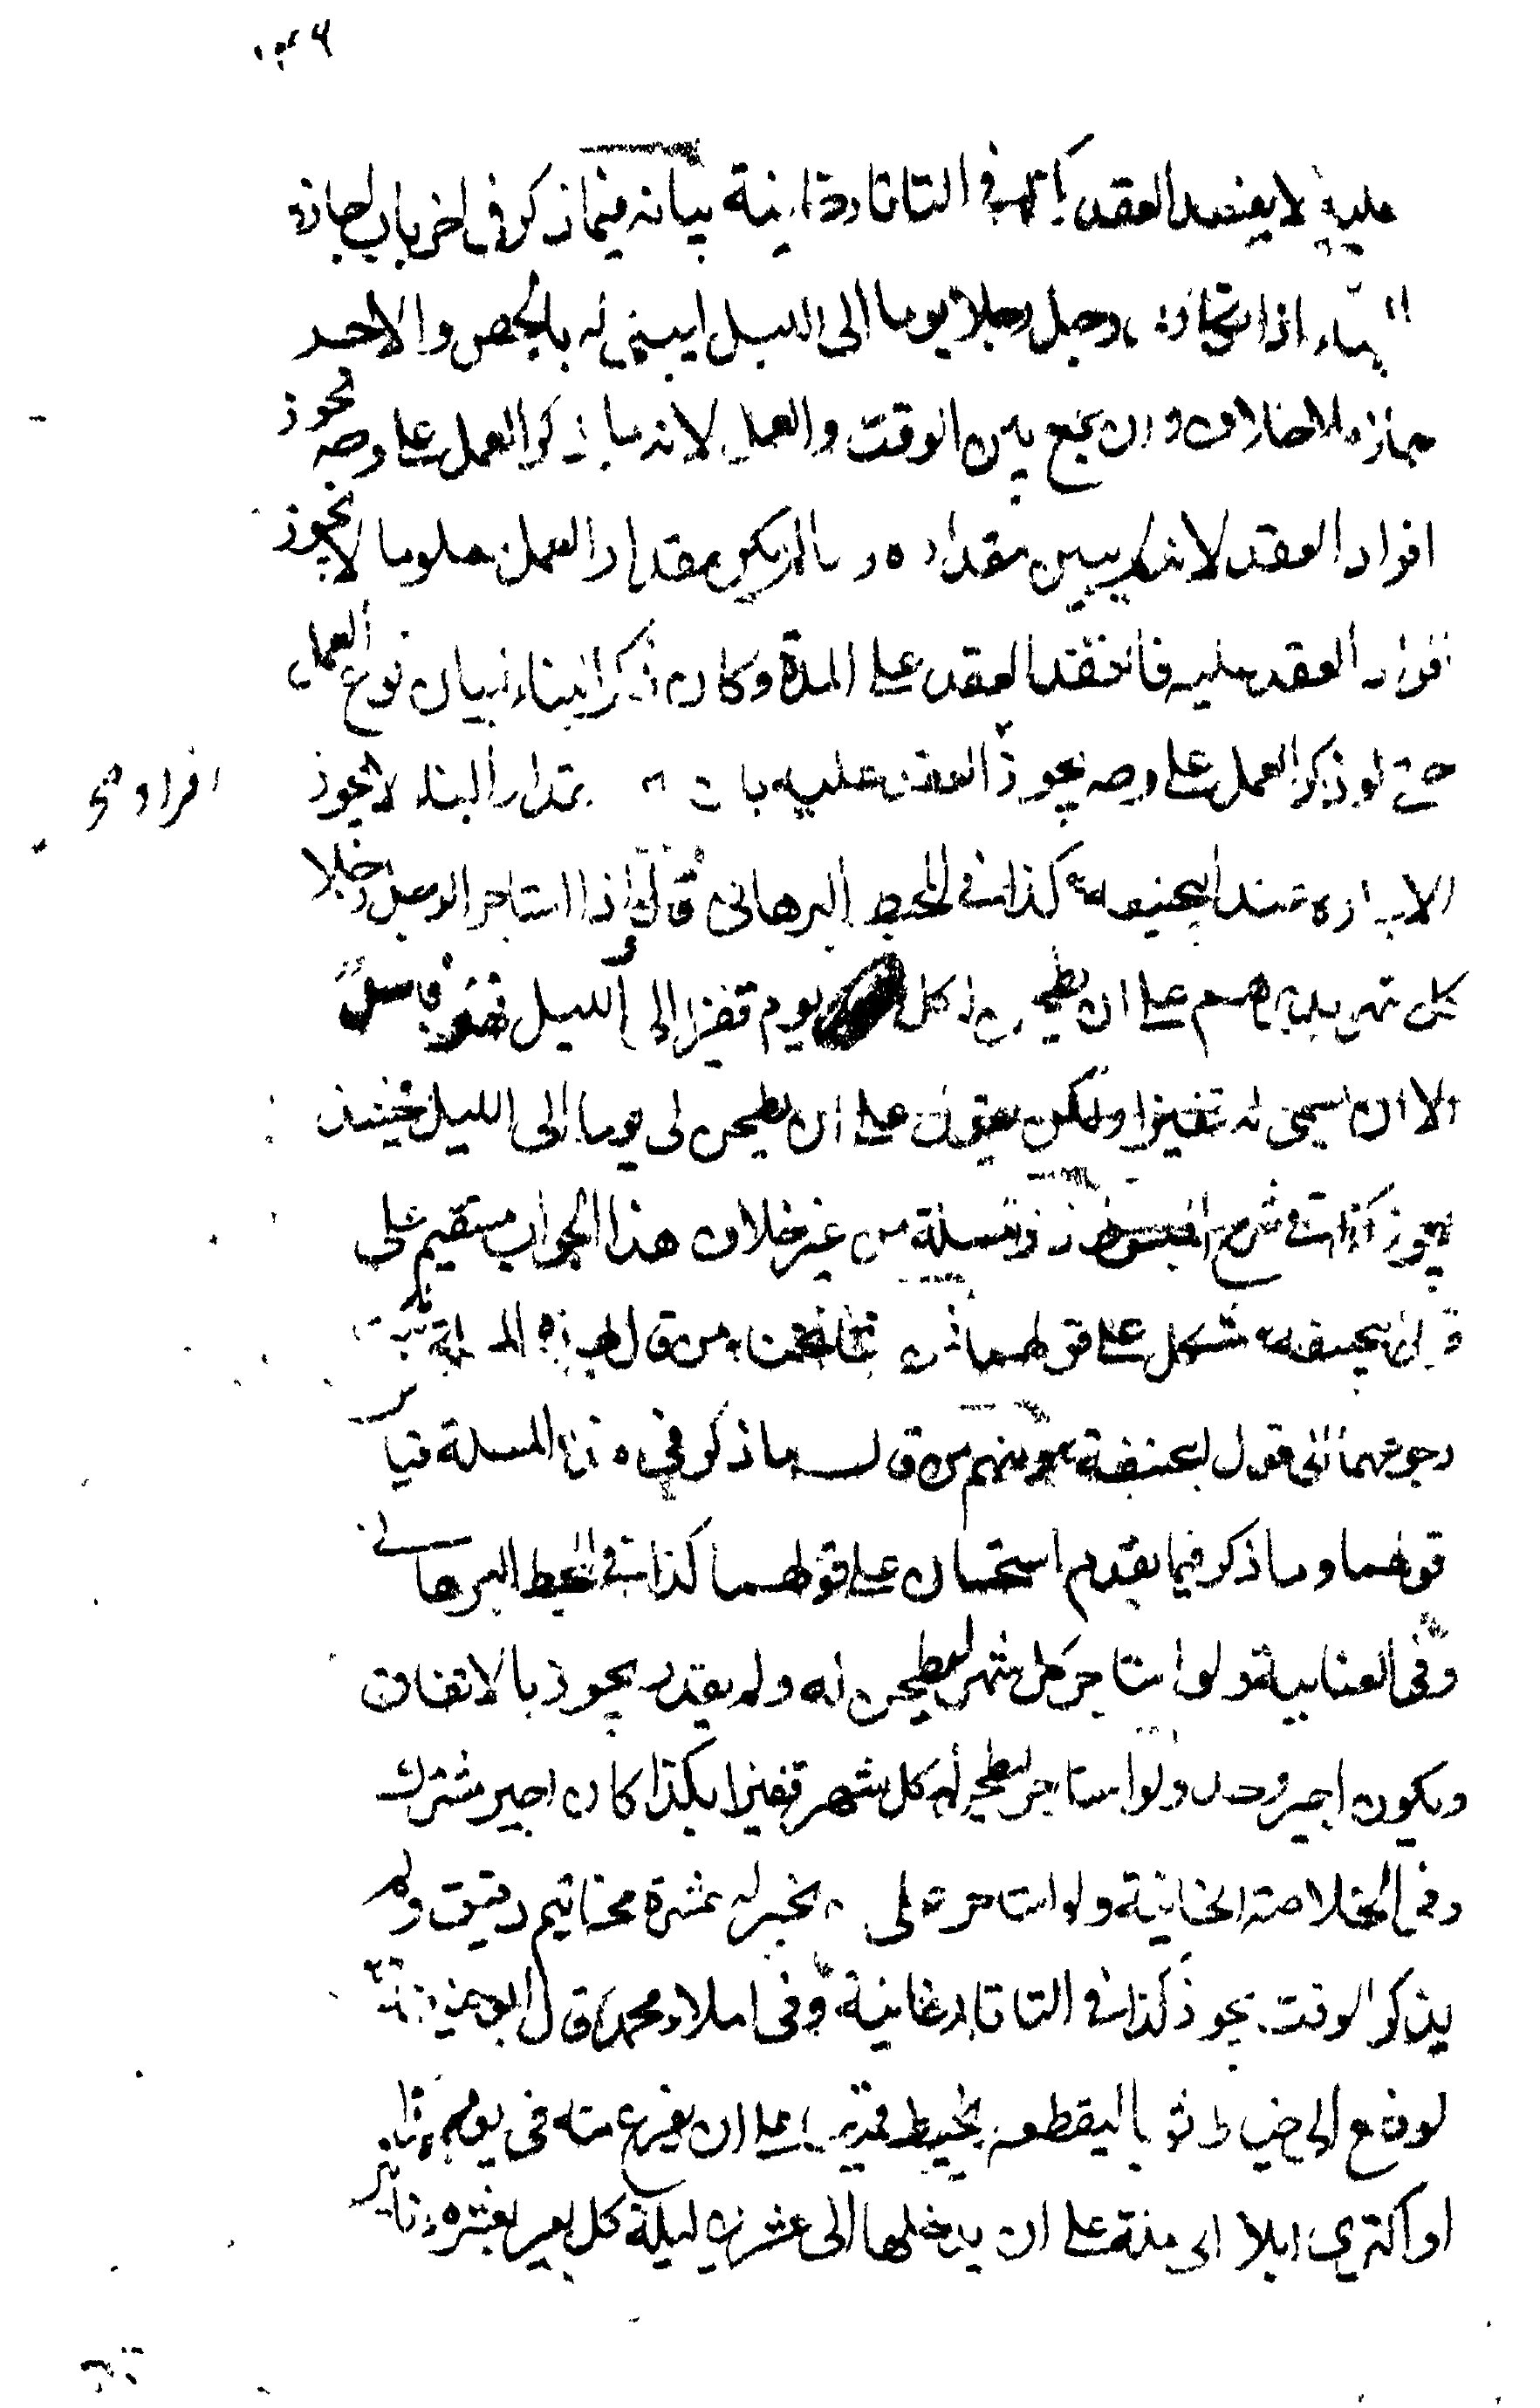 عليه لا يفسد العقد كذا في التاتارخانية بيانه فيما ذكر في اخر باب اجازة
البناء اذا استاجر رجل رجلا يوما الى الليل ليبني له بالجص والاجر
جاز بلا خلاف وان جمع بين الوقت والعمل لانه ما ذكر العمل على وجه يجوز
افراد العقد لانه لم يبين مقداره وما لم يكن مقدار العمل معلوما لا يجوز
افراد العقد عليه فانعقد العقد على المدة وكان ذكر البناء لبيان نوع العمل
حتى لو ذكر العمل على وجه يجوز العقد عليه بان بمقدار البناء لا يجوز
افراد صح
الاجارة عند ابيحنيفة كذا في المحيط البرهاني قال اذا استاجر الرجل رجلا
كل شهر بدرهم على ان يطحن له كل يوم قفيزا الى الليل فهو فاسد
الا ان يسمى له قفيزا ولكن يقول على ان يطحن لي يوما الى الليل حينئذ
يجوز كذا في شرح المبسوط ذ المسئلة من غير خلاف هذا الجواب مستقيم على
قول ابيحنيفة مشكل على قولهما من مشايخنا من قال هذه المسئلة
رجوعهما الى قول ابيحنيفة ومنهم من قال ما ذكر في هذه المسلة قياس
قولهما وما ذكر فيما يقدم استحسان على قولهما كذا في المحيط البرهاني
وفي العتابية ولو استاجر كل شهر ليطحن له ولم يقدر يجوز بالاتفاق
ويكون اجير وحد ولو استاجر ليطحن له كل شهر قفيزا بكذا كان اجير مشترك
وفي الخلاصة الخانية ولو استاجره على يخبز له عشرة مخاتيم دقيق ولم
يذكر الوقت يجوز كذا في التاتارخانية وفي املاء محمد قال ابو حنيفة
لو دفع الى خياط ثوبا ليقطعه ليخيط قميصا على ان يفرغ منه في يومه
او اكترى ابلا الى مكة على ان يدخلها الى عشرين ليلة كل بعير بعشرة دنانير